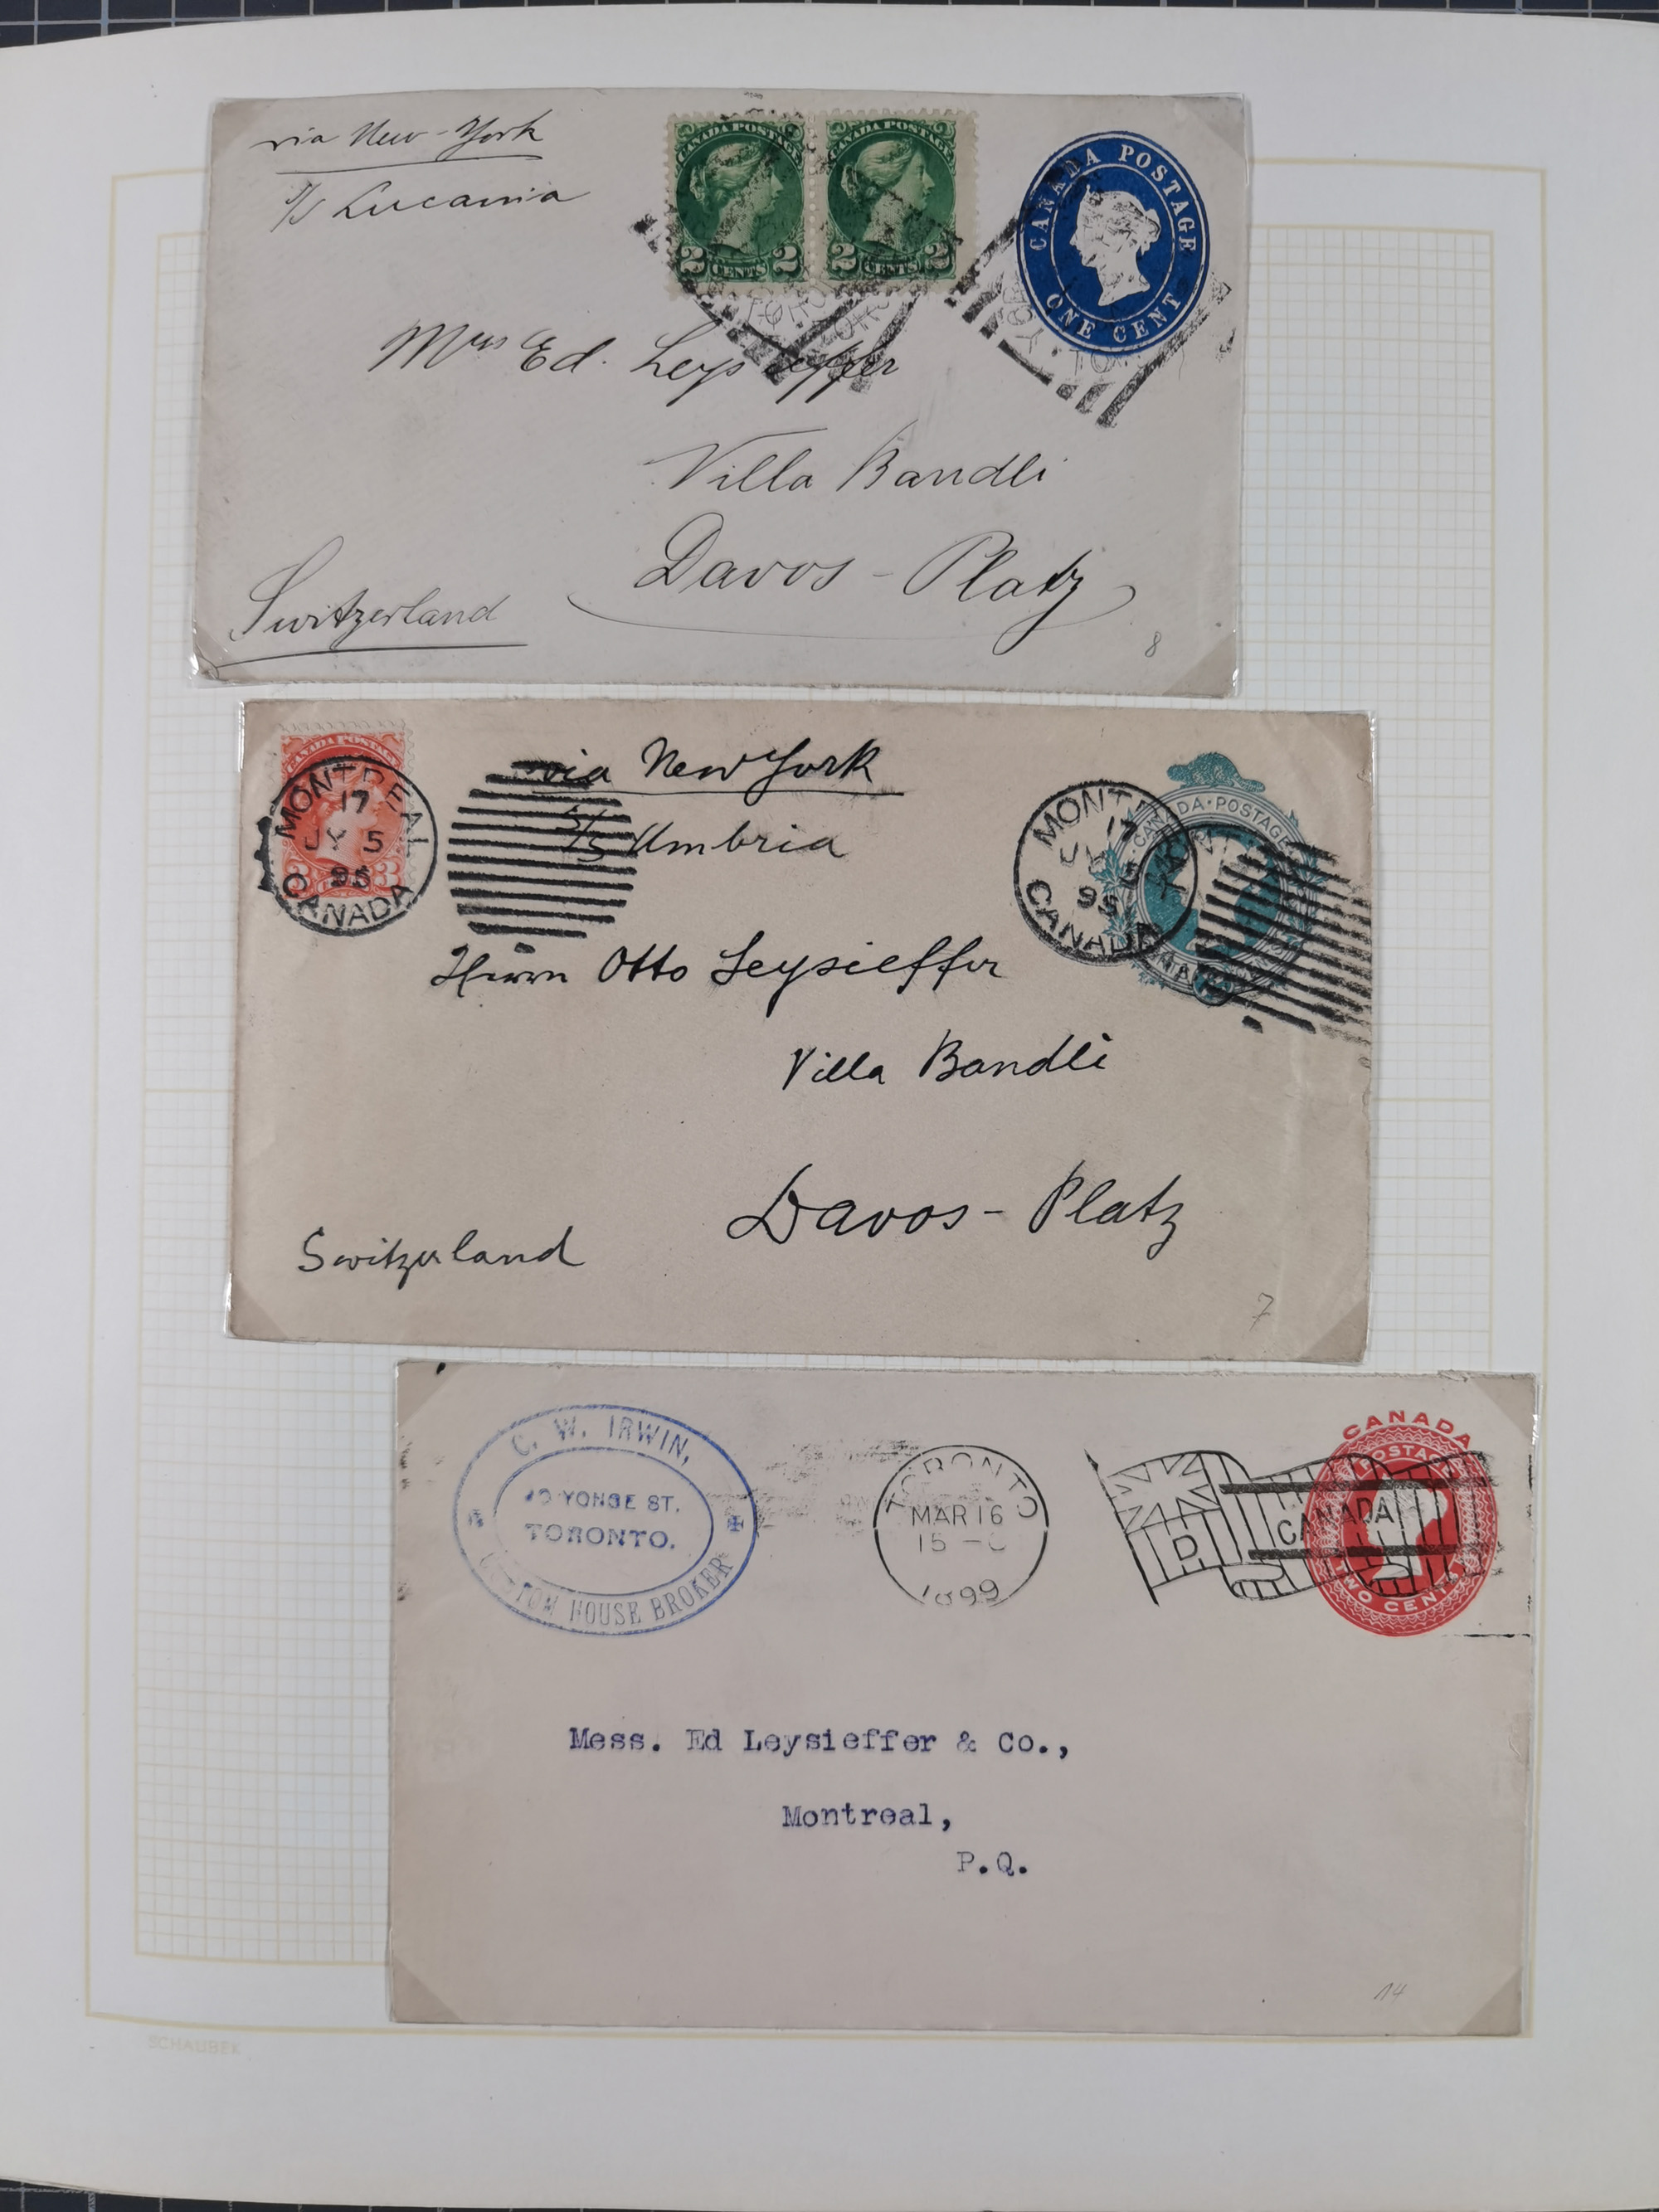 via New-York
S/S Lucania
CANADA POSTAGE
2 CENTS 2
CANADA POSTAGE
2 CENTS 2
CANADA POSTAGE
ONE CENT
Mrs Ed. Leysieffer
Villa Bandli
Davos-Platz
Switzerland
8
CANADA POSTAGE
3
MONTREAL
17
JY 5
95
CANADA
via New York
S/S Umbria
MONT
17
5
95
CANADA
CANADA·POSTAGE
Herrn Otto Leysieffer
Villa Bandli
Davos-Platz
Switzerland
7
C. W. IRWIN,
YONGE ST.
TORONTO.
CUSTOM HOUSE BROKER
TORONTO
MAR 16
15
1899
D
CANADA
CANADA
POSTAGE
TWO CENTS
Mess. Ed Leysieffer & Co.,
Montreal,
P.Q.
14
SCHAUBEK